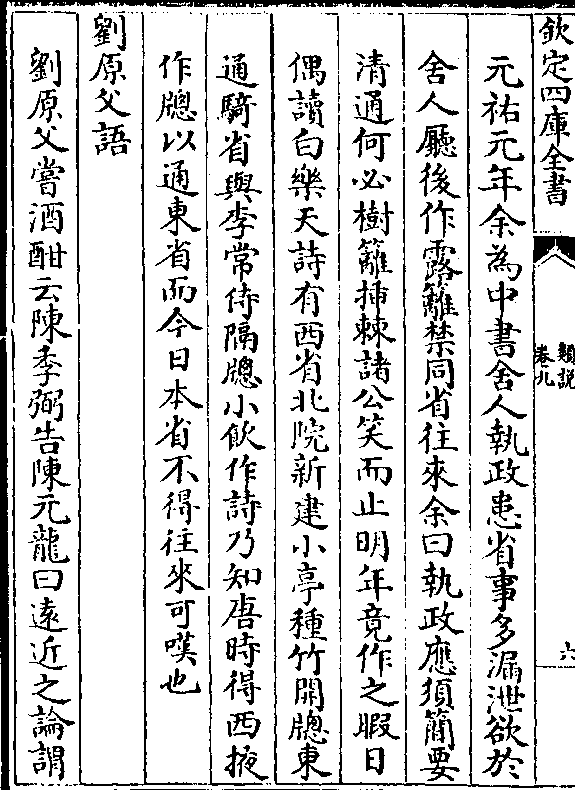 欽定四庫全書
類說
卷九
六
元祐元年余為中書舍人執政患省事多漏泄欲於
舍人廳後作露籬禁同省往來余曰執政應須簡要
清通何必樹籬揷棘諸公笑而止明年竟作之暇日
偶讀白樂天詩有西省北院新建小亭種竹開牕東
通騎省與李常侍隔牕小飲作詩乃知唐時得西掖
作牕以通東省而今日本省不得往來可嘆也
劉原父語
劉原父嘗酒酣云陳季弼告陳元龍曰逺近之論謂